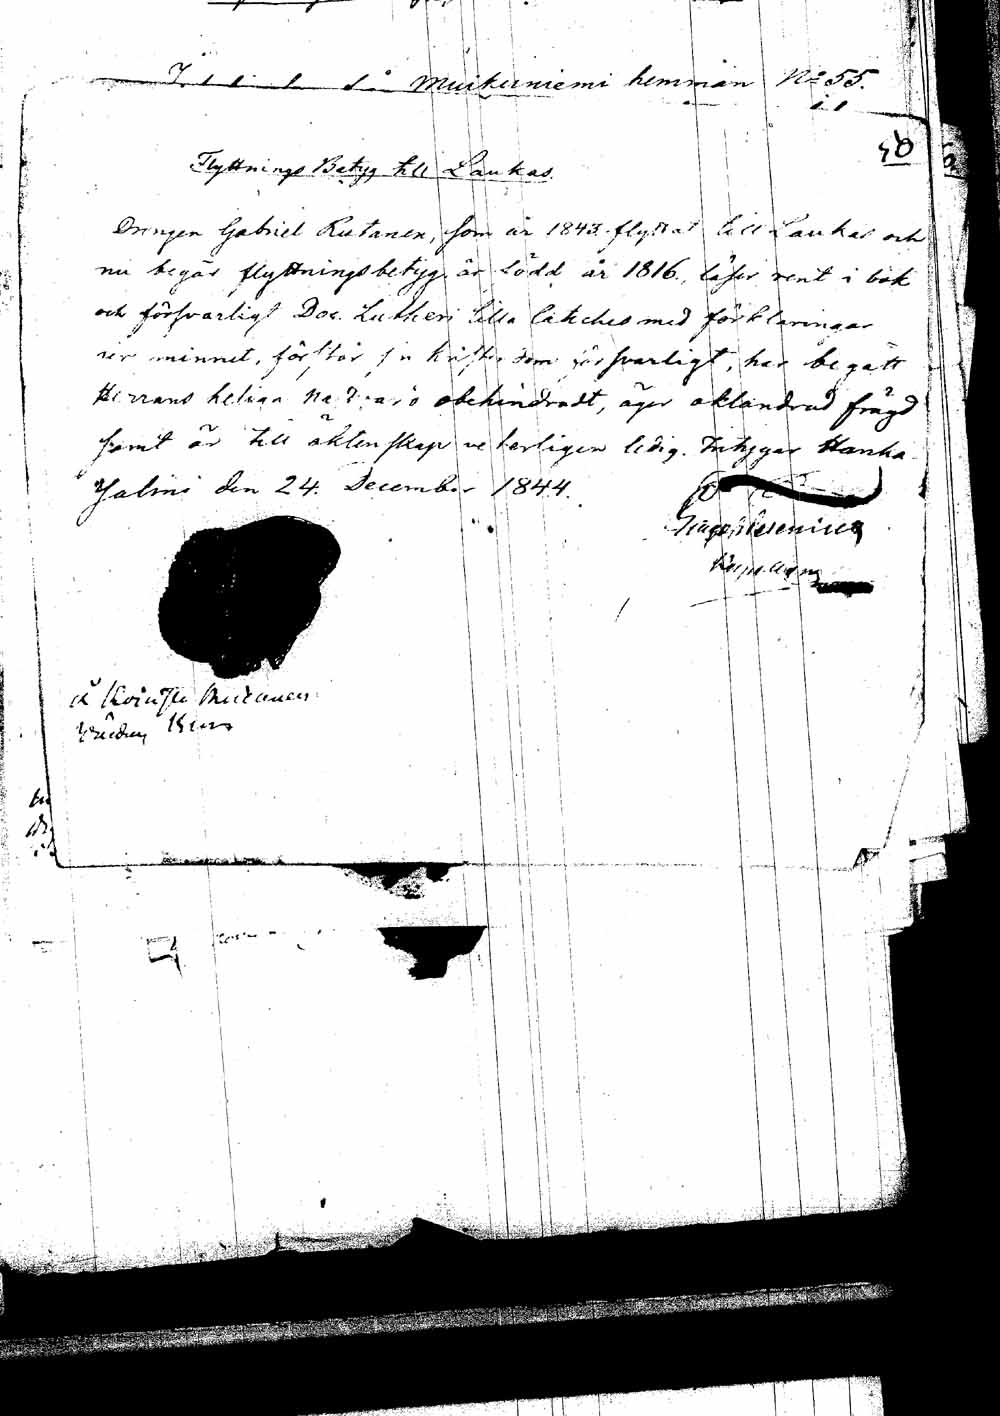 Muikuniemi hemman No 55.
40
Flyttnings Betyg till Laukas.
Drengen Gabriel Rutanen, som år 1843 flyttat till Laukas och
nu begär flyttningsbetyg är född år 1816, läser rent i bok
och försvarligt Doc. Lutheri lilla Catches med förklaringar
ur minnet, förstår sin kristendom försvarligt, har begått
Herrans heliga Nattvard obehindradt, äger oklandrad frägd
samt är till äktenskap veterligen ledig. Intygar Hanka
salmi den 24. December 1844.